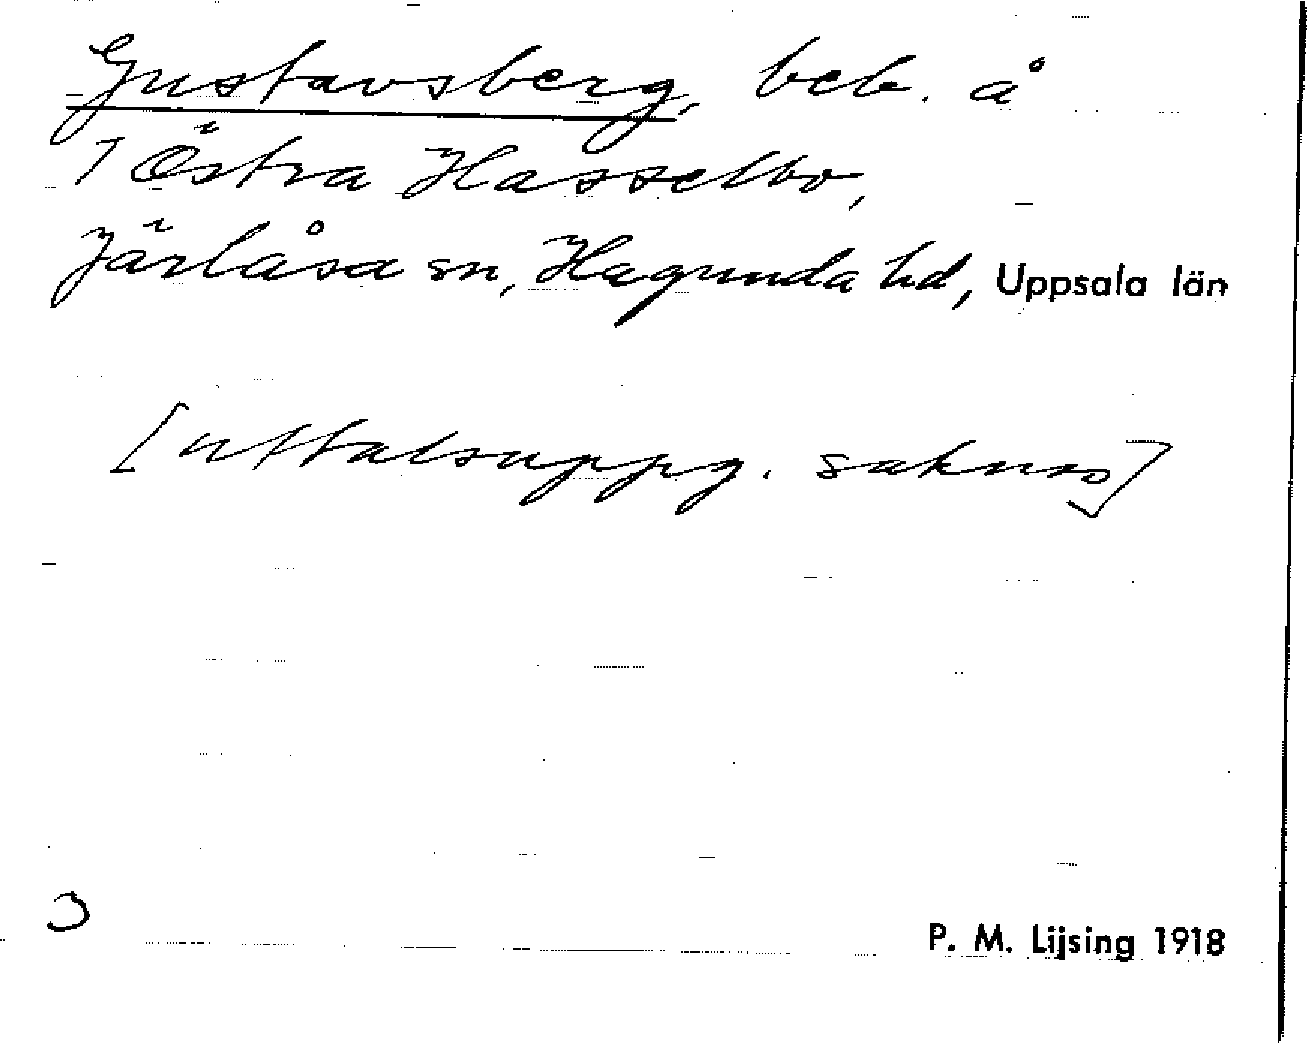 Gustavsberg, beb. å
1 Östra Hasselbo,
Järlåsa sn, Hagunda hd, Uppsala län
[uttalsuppg. saknas]
P. M. Lijsing 1918